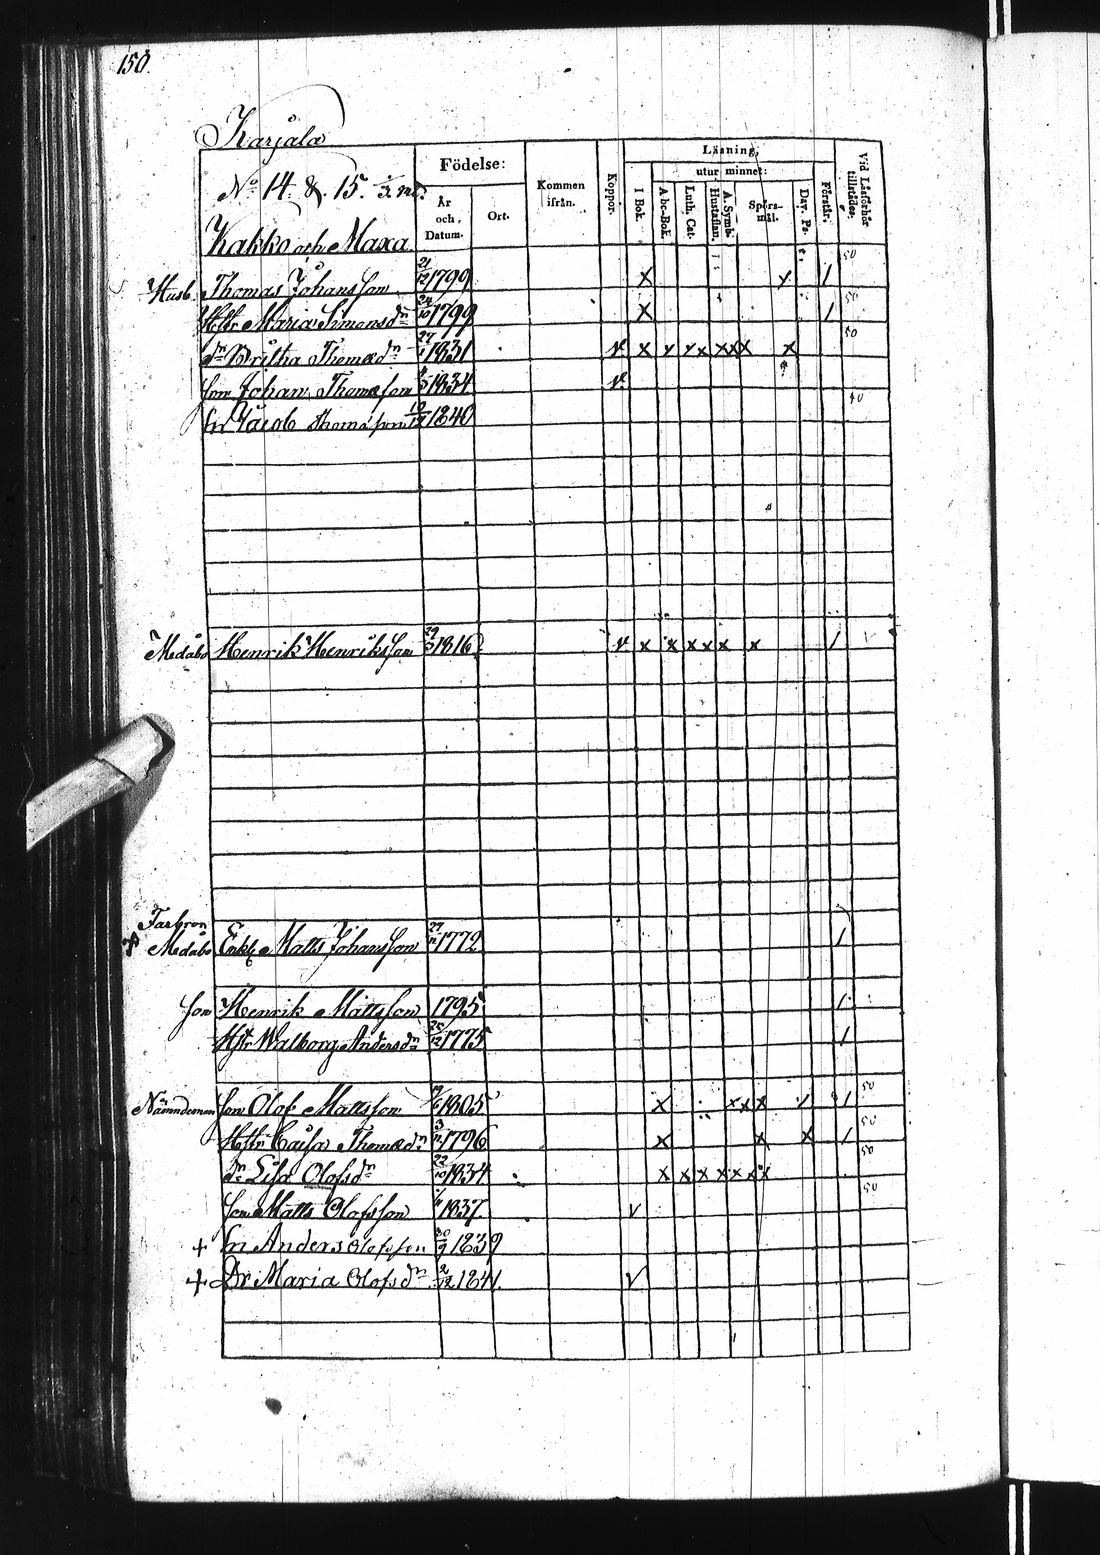 150.
Karjala
No 14. & 15. 1/3 ml.
Kakko och Maxa
Födelse:
År och Datum.
Ort.
Kommen ifrån.
Koppor.
Läsning,
utur minnet:
I Bok.
Abc-Bok.
Luth. Cat.
Hustaflan.
A. Symb.
Spörs-mål.
Dav. Ps.
Förstår.
Vid Läsförhör tillstädes.
50
Husb. Thomas Johansson 21/12 1799 x x 1
50
Hstr Maria Simonsdr 24/10 1799 x 1
50
dr Britha Thomædr 27/1 1831 v x x x x x x x x
Son Johan Thomæson 1834 v
40
Sn Jacob Thomasson 1840
Medåbo Henrik Henriksson 29/3 1816 v x x x x x x 1
Farbron
Medåbo Enkl. Matts Johansson 1772 1
Son Henrik Mattsson 1795 1
Hstr Walborg Andersdr 1775 1
50
Nämndeman Son Olof Mattsson 1805 x x x x 1 1
50
Hstr Caisa Thomædr 1796 x x x 1
50
dr Lisa Olofsdr 22/10 1834 x x x x x x x
50
Son Matts Olofsson 1837 v
+ Sn Anders Olofsson 30/9 1839
+ Dr Maria Olofsdr 2/12 1841 v